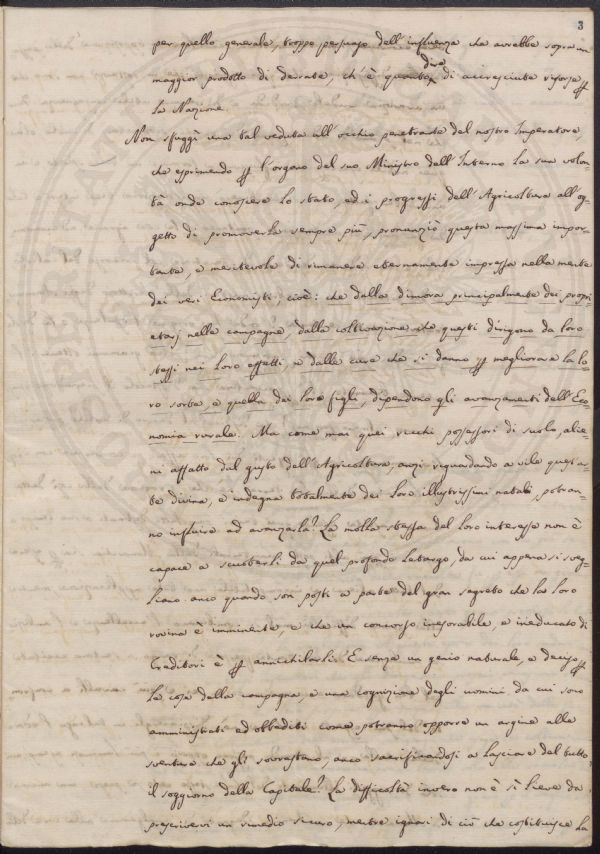 3
per quello generale, troppo persuaso dell'influenza che avrebbe sopra un
dire
maggior prodotto di derrate, ch'è quanto di accresciute risorse p
La Nazione.
Non sfuggì una tal veduta all'occhio penetrante del nostro Imperatore,
che esprimendo p l'organo del suo Ministro dell'Interno La sua volon-
tà onde conoscere Lo stato, ed i progressi dell'Agricoltura all'og-
getto di promoverla sempre più, pronunziò questa massima impor-
tante, e meritevole di rimanere eternamente impressa nella mente
dei veri Economisti, cioè: che dalla dimora principalmente dei propri-
etarj nelle campagne, dalla coltivazione che questi dirigono da loro
stessi nei Loro effetti, e dalle cure che si danno p megliorare la lo-
ro sorte, e quella dei loro figli, dipendono gli avanzamenti dell'Eco-
nomia rurale. Ma come mai quei ricchi possessori di suolo, alie-
ni affatto dal gusto dell'Agricoltura, anzi riguardando a vile quest'ar-
te divina, e indegna totalmente dei Loro illustrissimi natali, potran-
no influire ad avanzarla? La molla stessa del Loro interesse non è
capace a scuoterli da quel profondo Letargo, da cui appena si sveg-
liano anco quando son posti a parte del gran segreto che la Loro
rovina è imminente, e che un concorso inesorabile, e ineducato di
Creditori è p annichilarli. E senza un genio naturale, e deciso p
Le cose della campagna, e una cognizione degli uomini, da cui sono
amministrati ed obbediti come potranno opporre un argine alle
sventure che gli sovrastano, anco sacrificandosi a Lasciare del tutto
il soggiorno della Capitale? La difficoltà invero non è sì Lieve da
prescrivervi un rimedio sicuro, mentre ignari di ciò che costituisce La